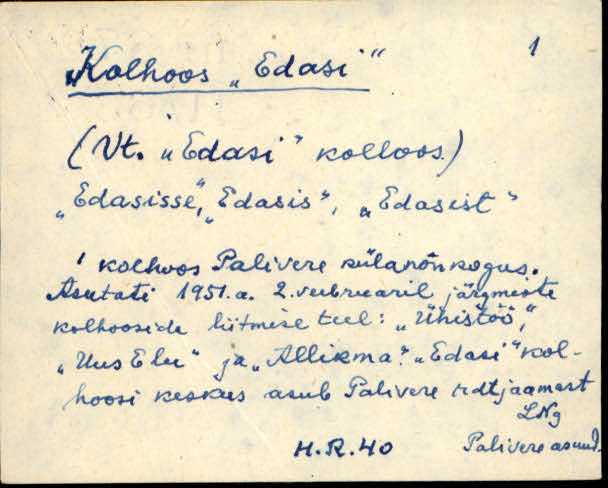 1
„Kolhoos „Edasi“
(Vt. „Edasi“ kolhoos.)
„Edasisse“, „Edasis“, „Edasist“
kolhoos Palivere külanõnkogus.
Asutati 1951.a. 2.veebruaril järgmiste
kolhooside liitmise teel: „Ühistöö“,
„Uus Elu“ ja „Allikma“. „Edasi“ kol-
hoosi keskus asub Palivere rdtjaamast
LNg
H.R.40 Palivere asund.